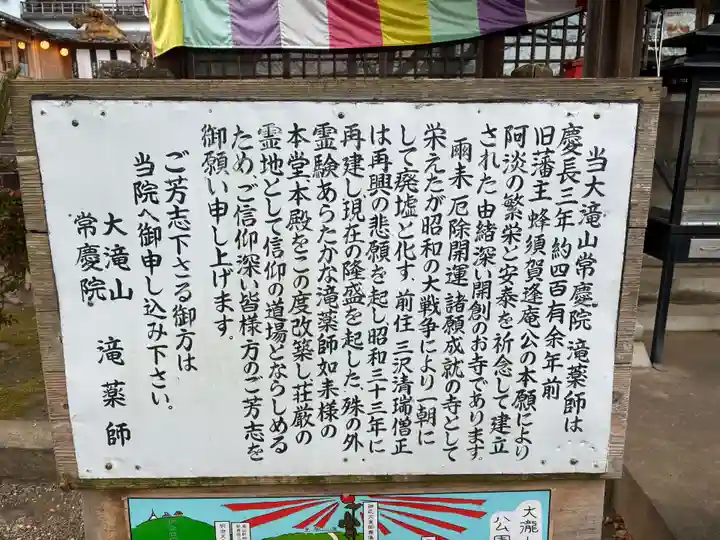 当大滝山常慶院滝薬師は
慶長三年 約四百有余年前
旧藩主 蜂須賀逢庵公の本願により
阿淡の繁栄と安泰を祈念して建立
された由緒深い開創のお寺であります。
爾来 厄除開運 諸願成就の寺として
栄えたが昭和の大戦争により一朝に
して廃墟と化す。前住 三沢清瑞僧正
は再興の悲願を起し昭和三十三年に
再建し現在の隆盛を起した。殊の外
霊験あらたかな滝薬師如来様の
本堂本殿をこの度改築し荘厳の
霊地として信仰の道場とならしめる
ためご信仰深い皆様方のご芳志を
御願い申し上げます。
ご芳志下さる御方は
当院へ御申し込み下さい。
大滝山 滝薬師
常慶院
大瀧
公園